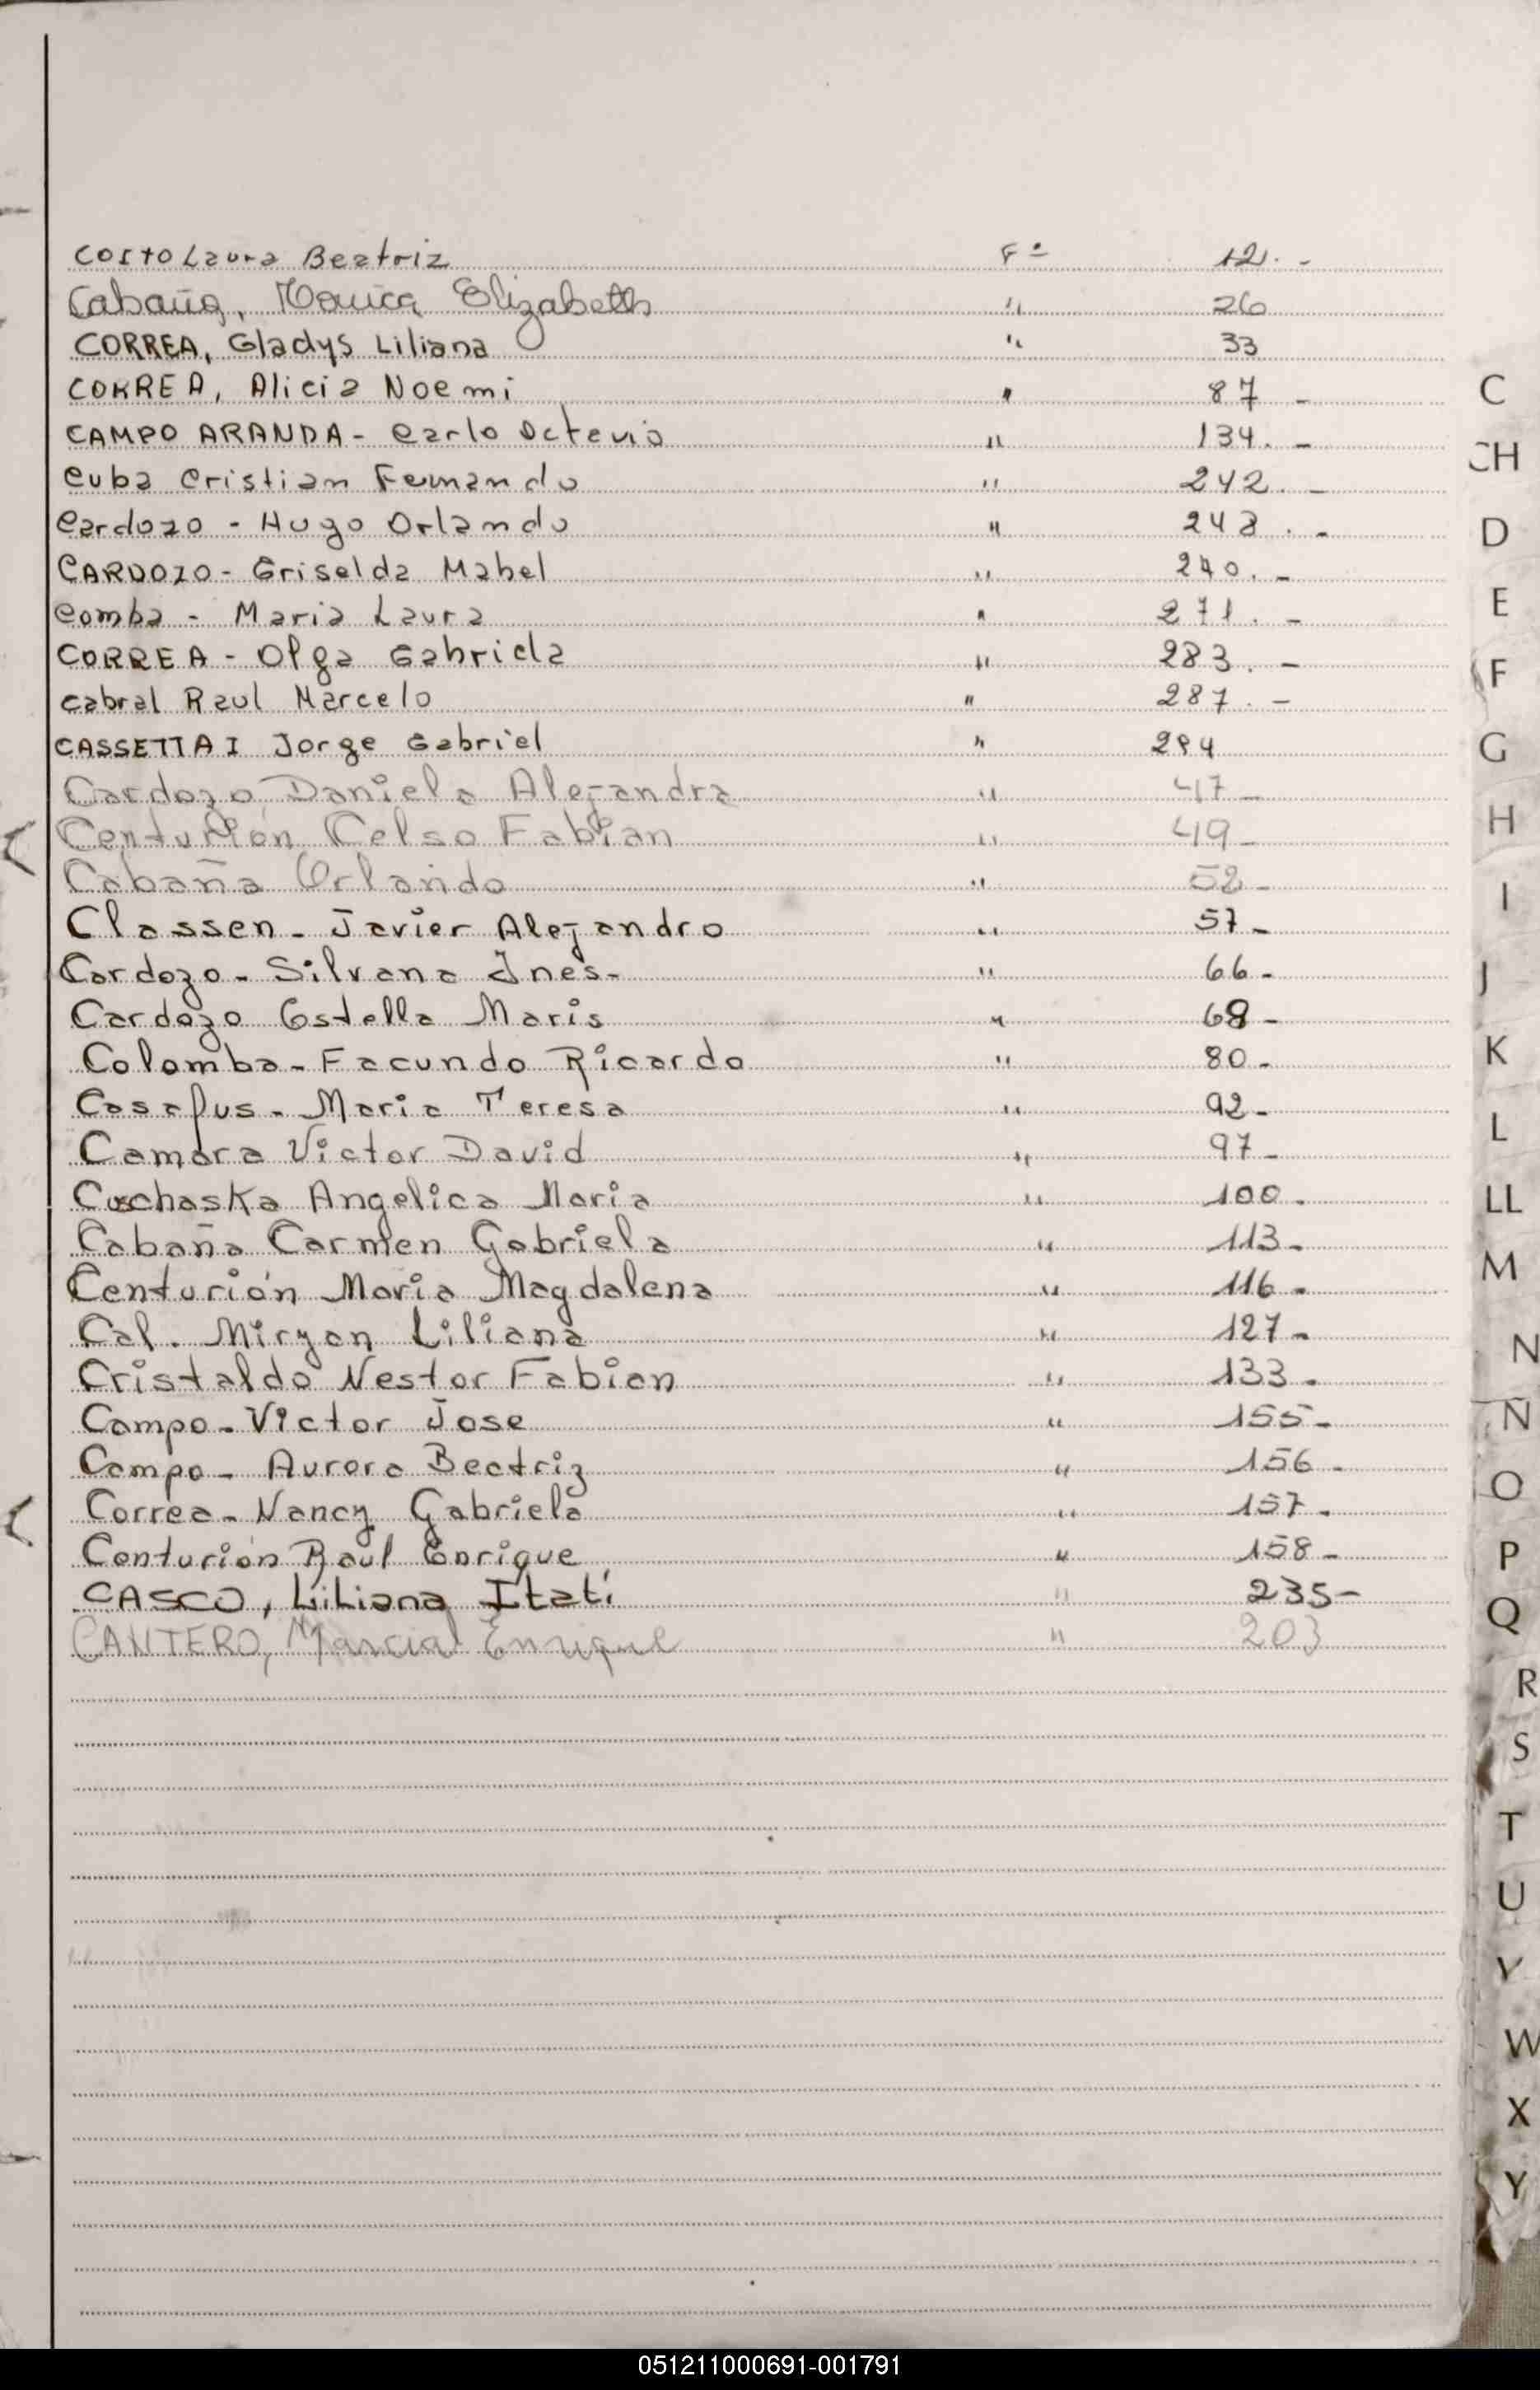 Costo Laura Beatriz Fº 12.-
Cabaña, Monica Elizabeth " 26
CORREA, Gladys Liliana " 33
CORREA, Alicia Noemi " 87 -
CAMPO ARANDA - Carlo Octavio " 134. -
Cuba Cristian Fernando " 242. -
Cardozo - Hugo Orlando " 248. -
CARDOZO - Griselda Mabel " 240. -
Comba - Maria Laura " 271. -
CORREA - Olga Gabriela " 283. -
Cabral Raul Marcelo " 287. -
CASSETTAI Jorge Gabriel " 294
Cardozo Daniela Alejandra " 47 -
Centurión Celso Fabian " 49 -
Cabaña Orlando " 52 -
Classen - Javier Alejandro " 57 -
Cardozo - Silvana Ines - " 66 -
Cardozo Estella Maris " 68 -
Colomba - Facundo Ricardo " 80 -
Casafus - Maria Teresa " 92 -
Camara Victor David " 97 -
Cuschaska Angelica Maria " 100 -
Cabaña Carmen Gabriela " 113 -
Centurión Maria Magdalena " 116 -
Cal. Miryan Liliana " 127 -
Cristaldo Nestor Fabian " 133 -
Campo - Victor Jose " 155 -
Campo - Aurora Beatriz " 156 -
Correa - Nancy Gabriela " 157 -
Centurión Raul Enrique " 158 -
CASCO, Liliana Itatí " 235 -
CANTERO, Marcial Enrique " 203
C
CH
D
E
F
G
H
I
J
K
L
LL
M
N
Ñ
O
P
Q
R
S
T
U
V
W
X
Y
051211000691-001791